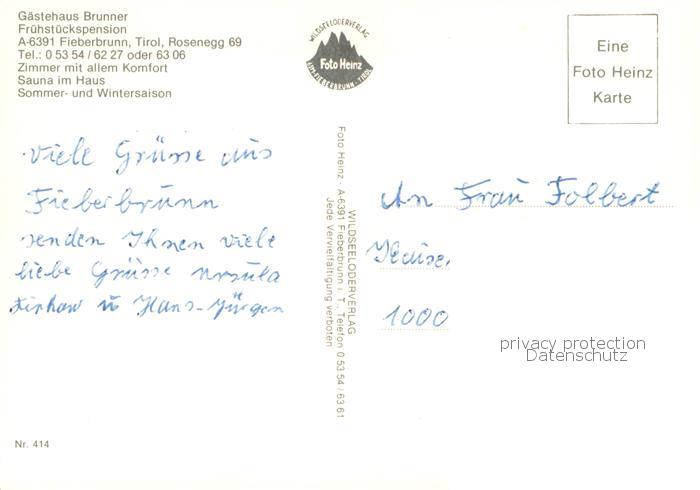 Gästehaus Brunner
Frühstückspension
A-6391 Fieberbrunn, Tirol, Rosenegg 69
Tel.: 0 53 54 / 62 27 oder 63 06
Zimmer mit allem Komfort
Sauna im Haus
Sommer- und Wintersaison
WILDSEELODERVERLAG
Foto Heinz
A-6391 FIEBERBRUNN - TIROL
Eine
Foto Heinz
Karte
Viele Grüsse aus
Fieberbrunn
senden Ihnen viele
liebe Grüsse Ursula
u Hans-Jürgen
WILDSEELODERVERLAG
Foto Heinz - A-6391 Fieberbrunn i. T., Telefon 0 53 54 / 63 61
Jede Vervielfältigung verboten
An Frau Folbert
1000
privacy protection
Datenschutz
Nr. 414